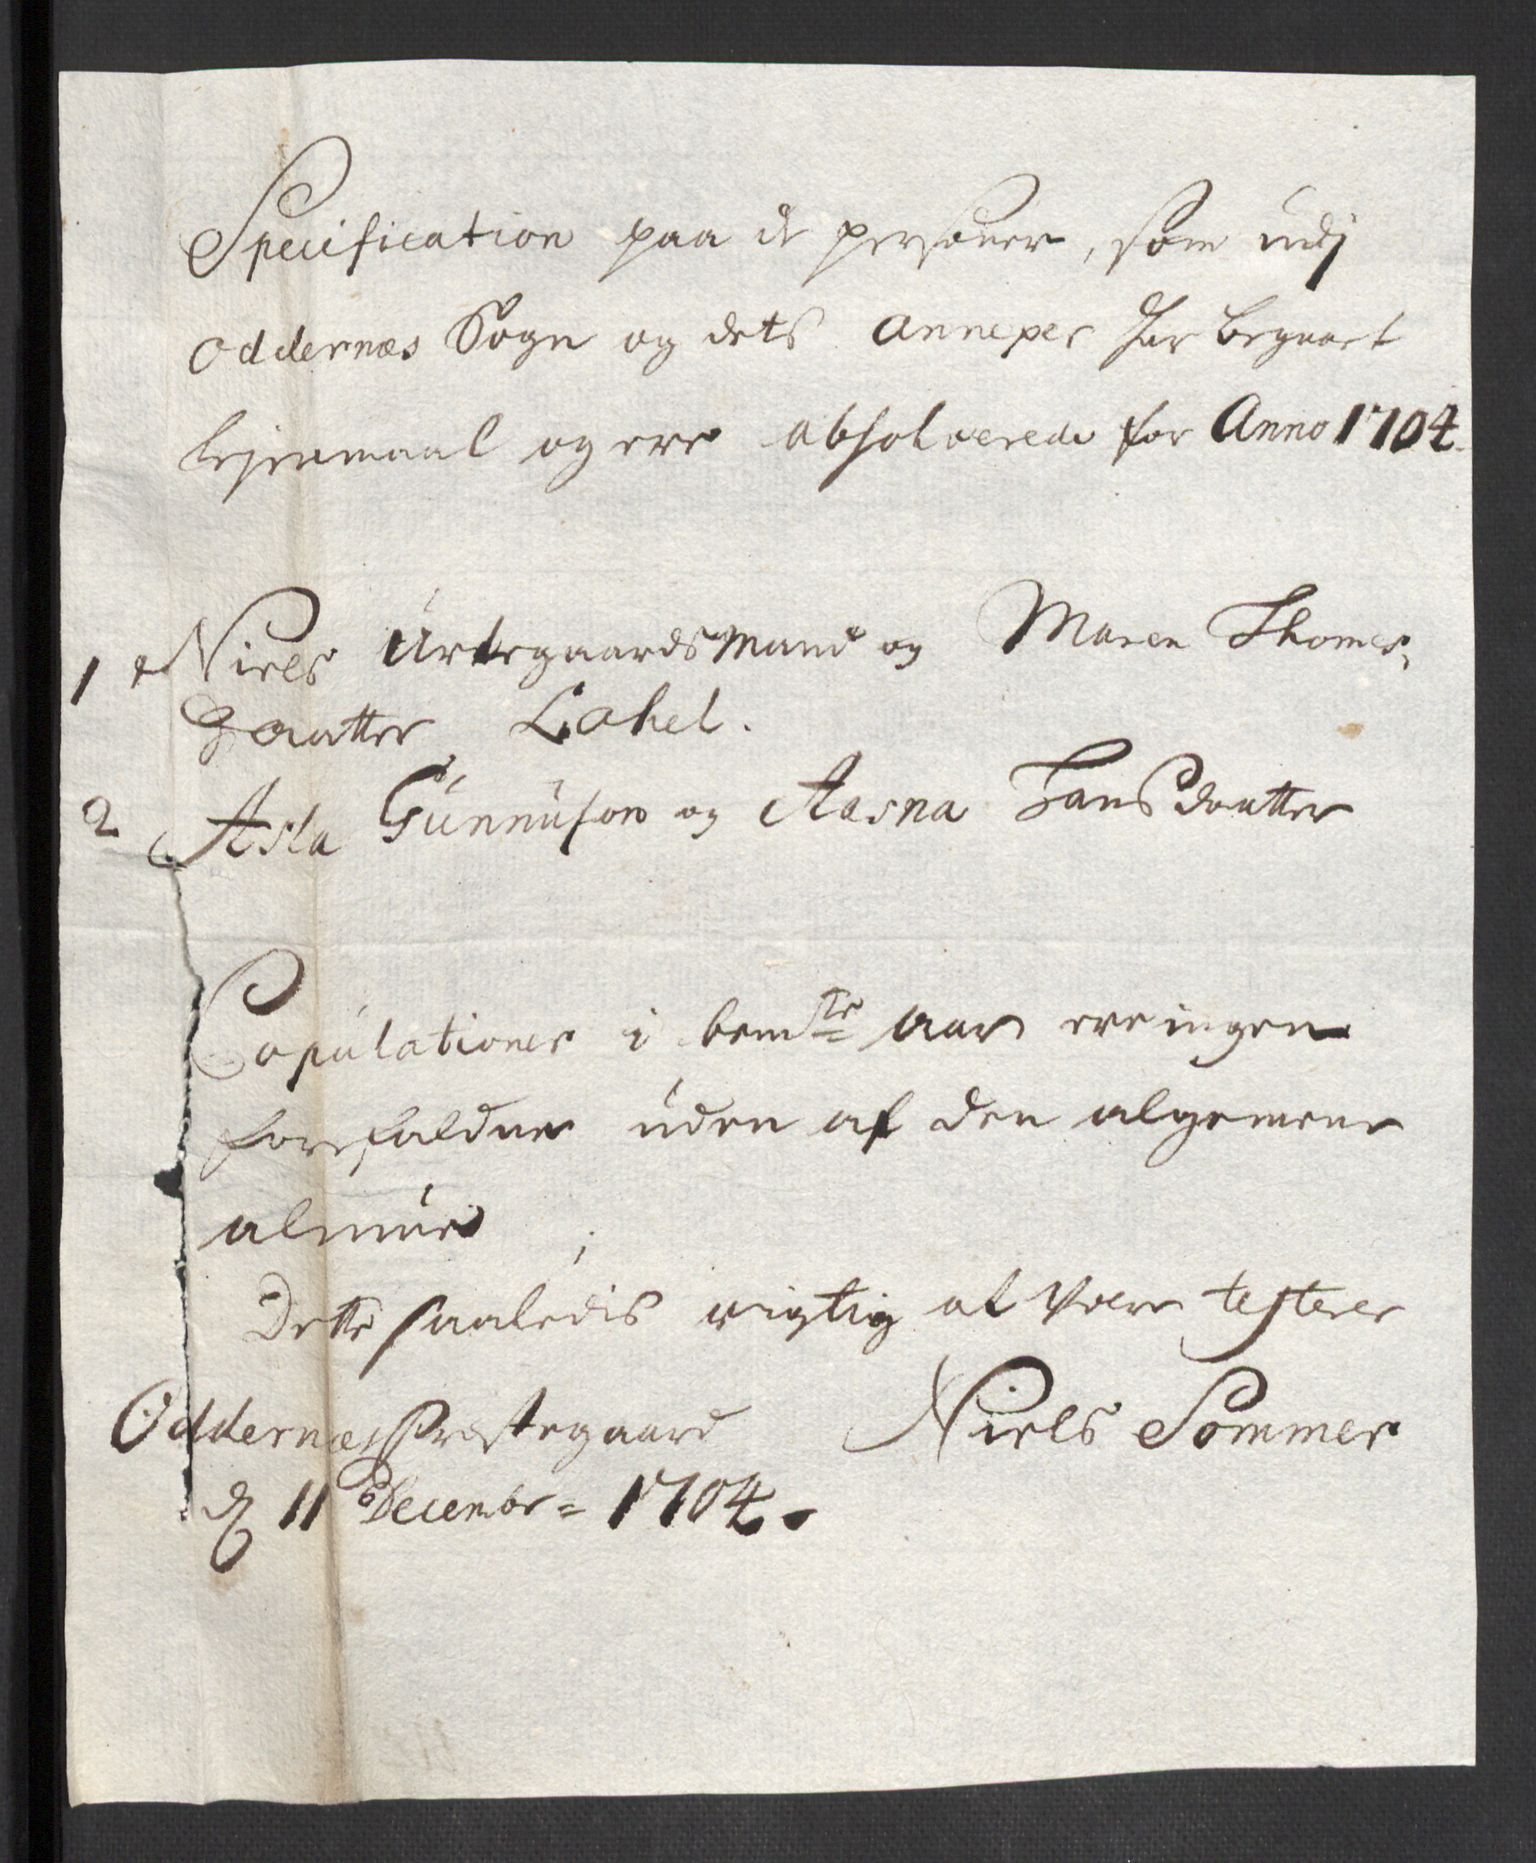 Specification paa de personer, som udj
Oddernæs Sogn og dets annexer har begaaet
lejermaal og ere absolverede for Anno 1704.
1 Niels Urtegaards Mand og Maren Thomes,
Daatter Lahel.
2 Asla Gunnufon og Aasna HansDaatter
Copulationer i bemte aar ere ingen
forefaldne uden af den algemene
almue
Dette saaledis rigtig at være testerer
Oddernæs Præstegaard Niels Sommer
d 11 Decembr = 1704.